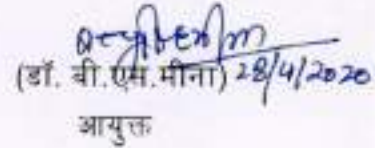 (डॉ. बी.एम.मीना) 28/4/2020
आयुक्त